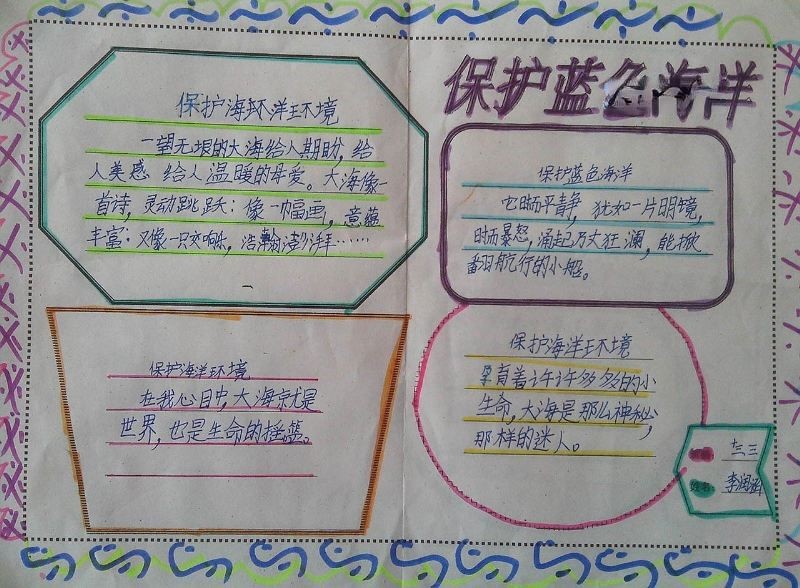 保护蓝色海洋
保护海洋环境
一望无垠的大海给人期盼，给
人美感 给人温暖的母爱。大海像一
首诗，灵动跳跃；像一幅画，意蕴
丰富；又像一只交响乐，浩瀚澎湃……
保护蓝色海洋
它时而平静，犹如一片明镜，
时而暴怒，涌起万丈狂澜，能掀
翻航行的小船。
保护海洋环境
在我心目中，大海就是
世界，也是生命的摇篮。
保护海洋环境
育着许许多多的小
生命，大海是那么神秘，
那样的迷人。
三三
姓名：李润